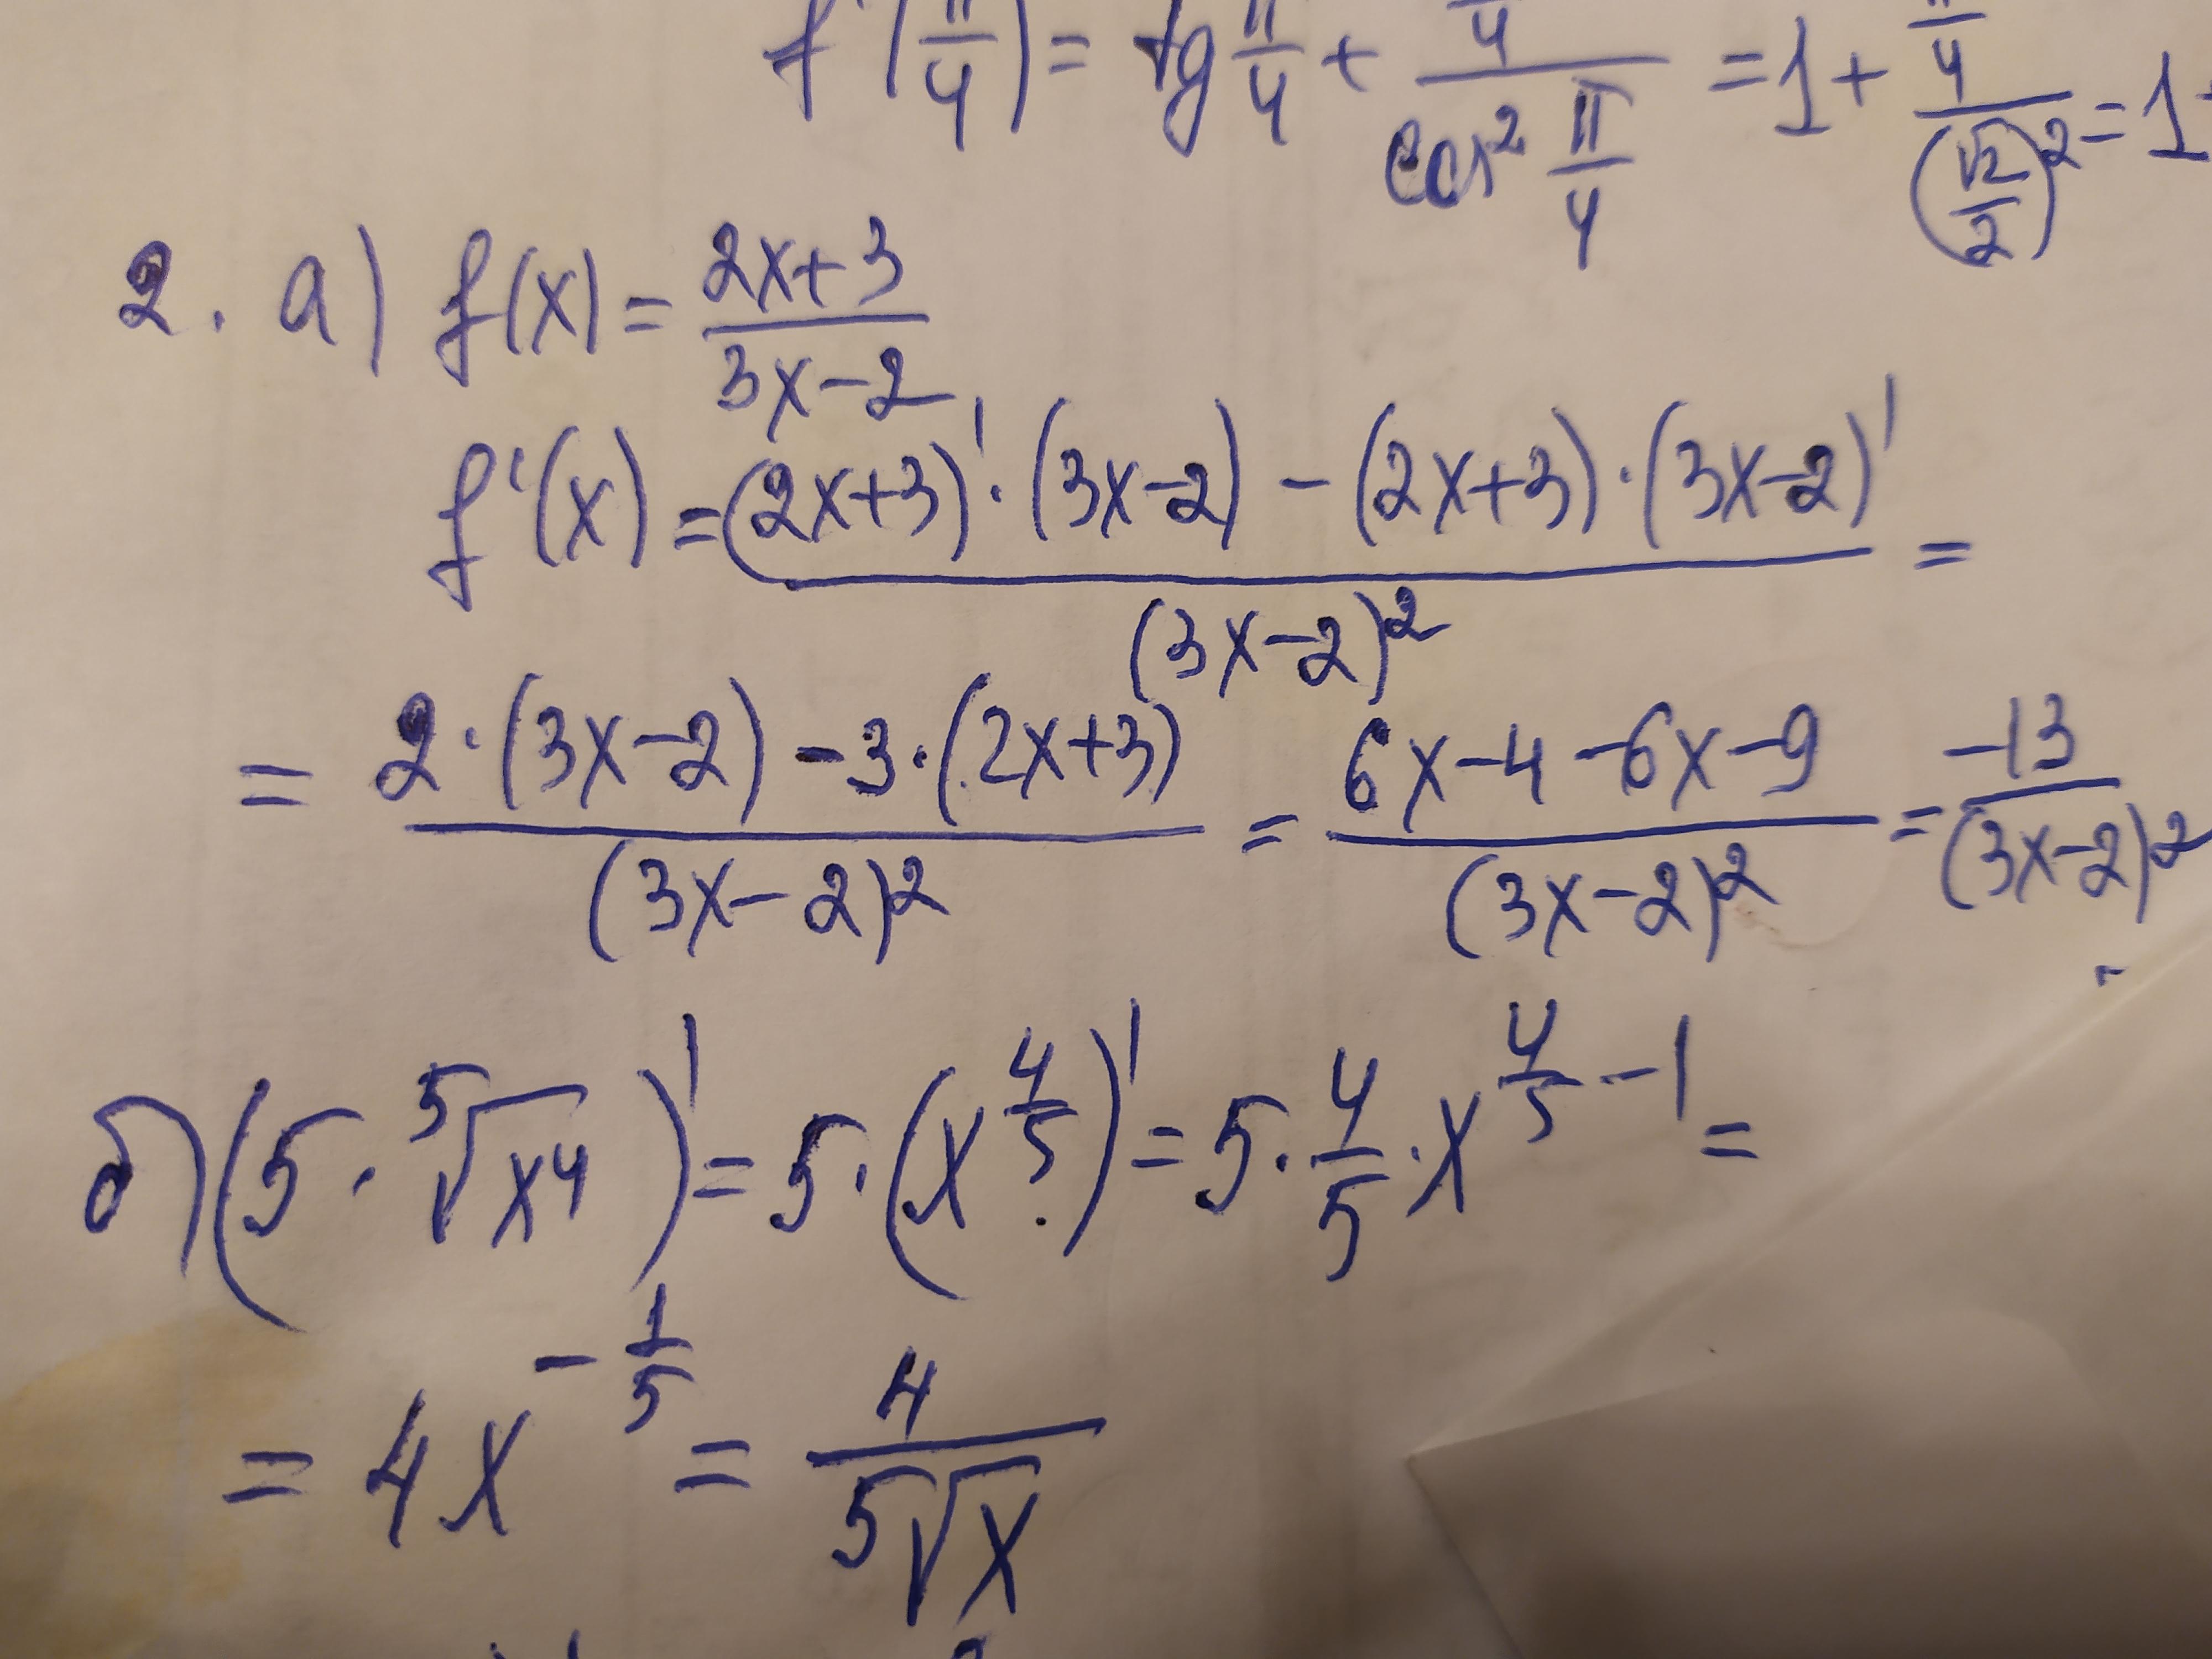 f'(π/4) = tg π/4 + (π/4)/(cos² π/4) = 1 + (π/4)/((√2/2)²) = 1+
2. а) f(x) = (2x+3)/(3x-2)
f'(x) = ((2x+3)'·(3x-2) - (2x+3)·(3x-2)')/((3x-2)²) =
= (2·(3x-2) - 3·(2x+3))/((3x-2)²) = (6x-4-6x-9)/((3x-2)²) = -13/((3x-2)²)
б) (5·⁵√x⁴)' = 5·(x^(4/5))' = 5·4/5·x^(4/5 - 1) =
= 4x^(-1/5) = 4/(⁵√x)